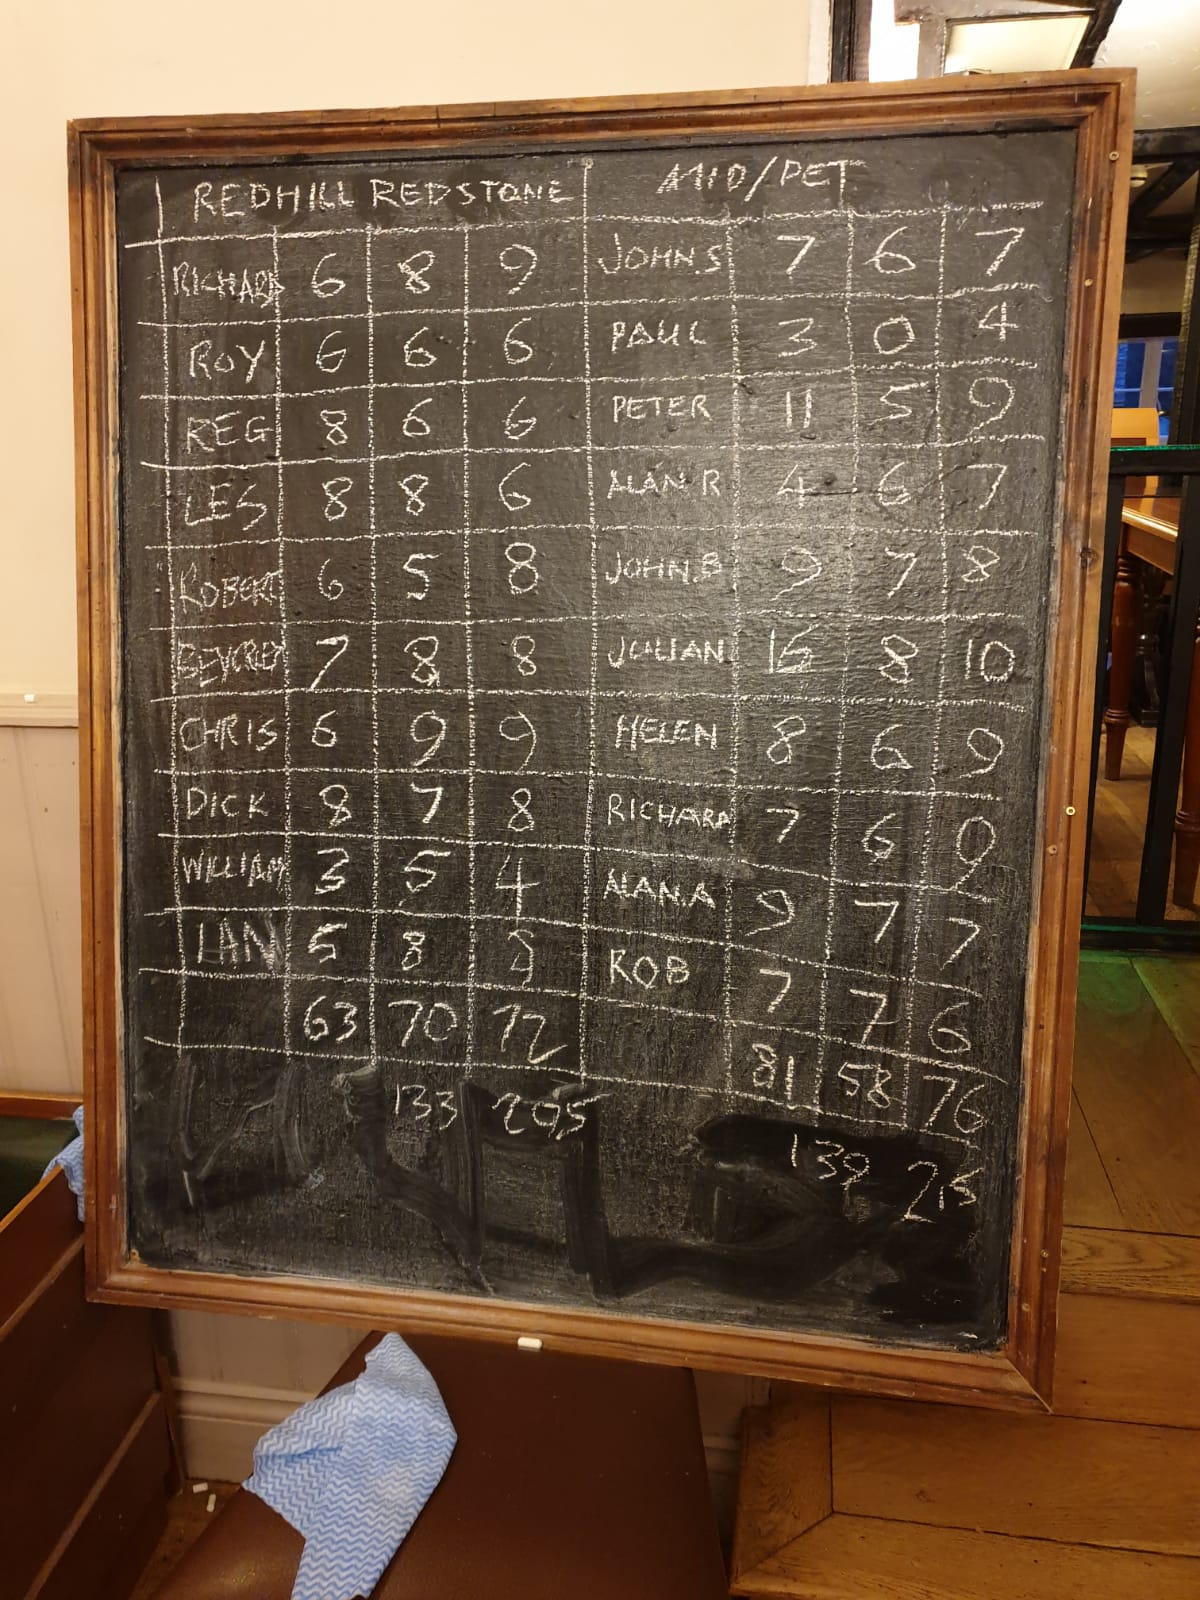 REDHILL REDSTONE MID/PET
RICHARD 6 8 9 JOHN.S 7 6 7
ROY 6 6 6 PAUL 3 0 4
REG 8 6 6 PETER 11 5 9
LES 8 8 6 ALAN R 4 6 7
ROBERT 6 5 8 JOHN.B 9 7 8
BEVERLEY 7 8 8 JULIAN 16 8 10
CHRIS 6 9 9 HELEN 8 6 9
DICK 8 7 8 RICHARD 7 6 9
WILLIAM 3 5 4 ALAN A 9 7 7
IAN 5 8 8 ROB 7 7 6
63 70 72 81 58 76
133 205 139 215